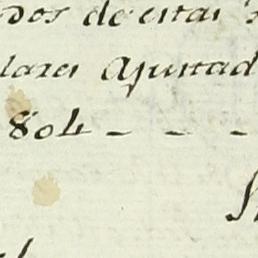 dos de estas
lares Ajustad
804 - - -